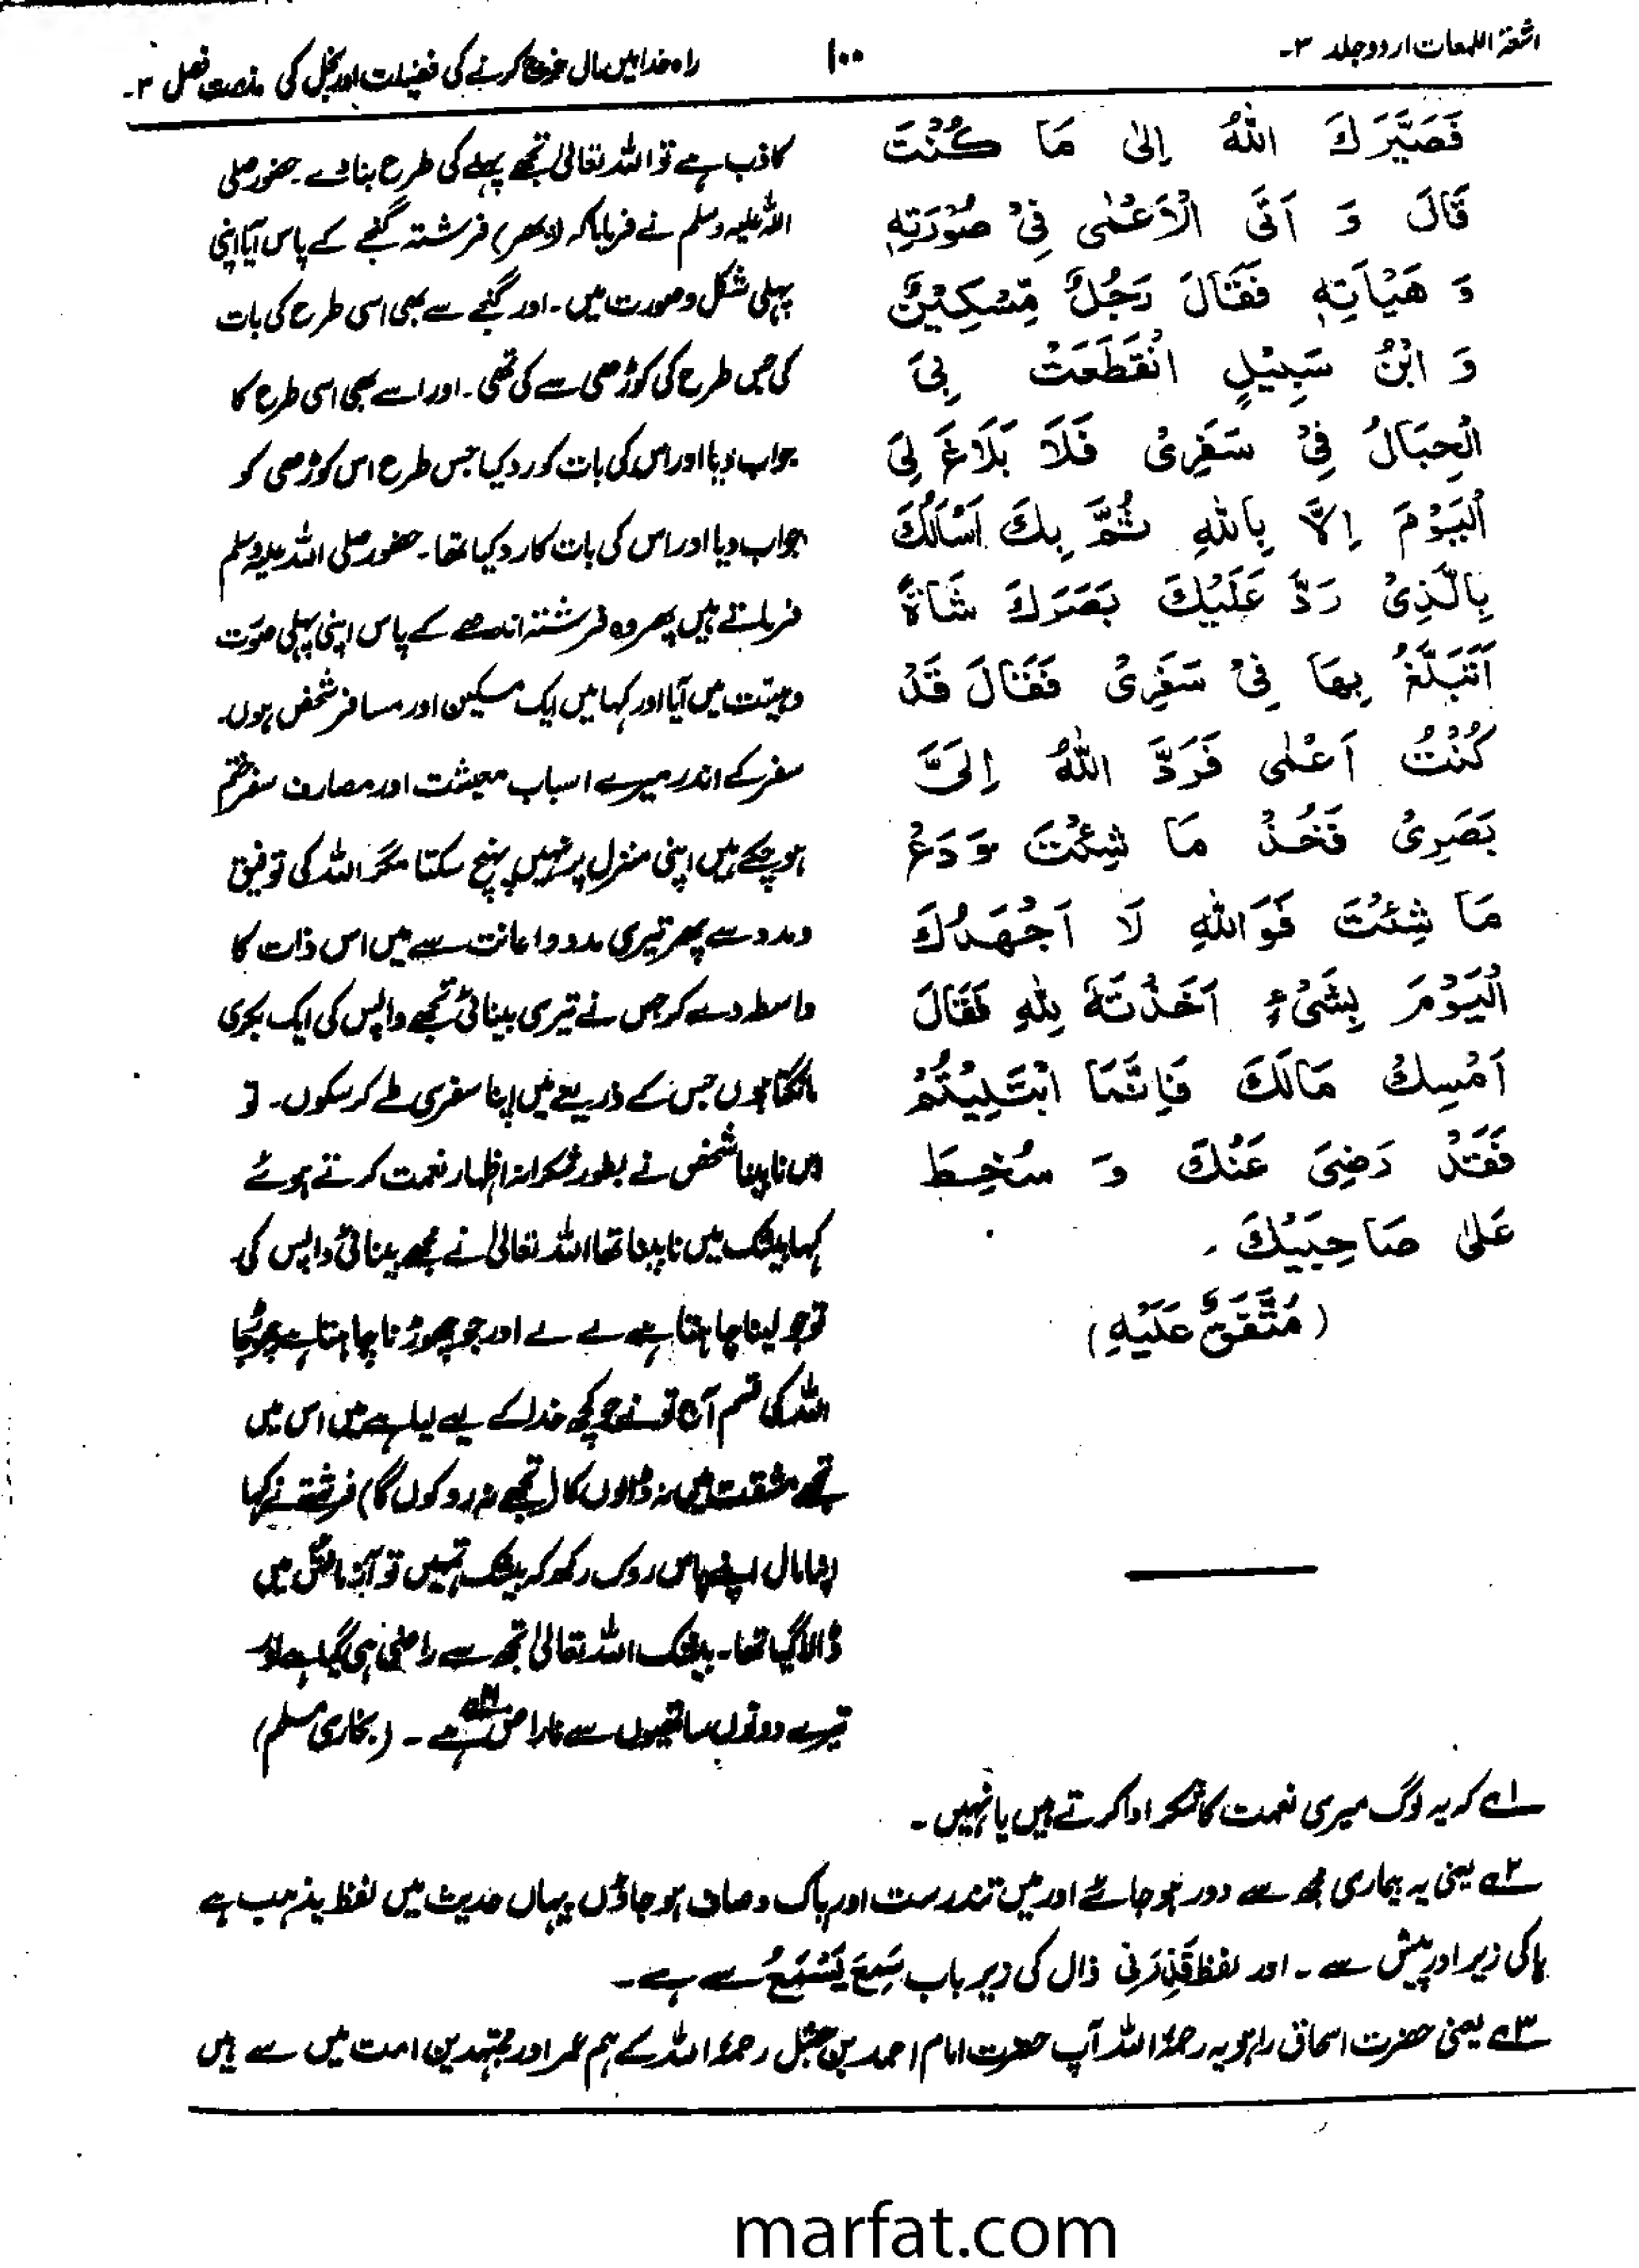 اشعۃ اللمعات اردو جلد ۳۔
۱۰۰
راہ خدا میں مال خرچ کرنے کی فضیلت اور بخل کی مذمت فصل ۳۔
فَصَيَّرَكَ اللّٰهُ اِلىٰ مَا كُنْتَ
قَالَ وَ اَتَى الْاَعْمٰى فِىْ صُوْرَتِهٖ
وَ هَيْأَتِهٖ فَقَالَ رَجُلٌ مِّسْكِيْنٌ
وَ ابْنُ سَبِيْلٍ انْقَطَعَتْ بِىَ
الْحِبَالُ فِىْ سَفَرِىْ فَلَا بَلَاغَ لِىَ
الْيَوْمَ اِلَّا بِاللّٰهِ ثُمَّ بِكَ اَسْأَلُكَ
بِالَّذِىْ رَدَّ عَلَيْكَ بَصَرَكَ شَاةً
اَتَبَلَّغُ بِهَا فِىْ سَفَرِىْ فَقَالَ قَدْ
كُنْتُ اَعْمٰى فَرَدَّ اللّٰهُ اِلَىَّ
بَصَرِىْ فَخُذْ مَا شِئْتَ وَدَعْ
مَا شِئْتَ فَوَاللّٰهِ لَا اَجْهَدُكَ
الْيَوْمَ بِشَىْءٍ اَخَذْتَهٗ لِلّٰهِ فَقَالَ
اَمْسِكْ مَالَكَ فَاِنَّمَا ابْتُلِيْتُمْ
فَقَدْ رَضِىَ عَنْكَ وَ سُخِطَ
عَلىٰ صَاحِبَيْكَ ۔
(مُتَّفَقٌ عَلَيْهِ)
کاذب ہے تو اللہ تعالیٰ تجھے پہلے کی طرح بنا دے۔ حضور صلی
اللہ علیہ وسلم نے فرمایا کہ (پھر) فرشتہ گنجے کے پاس آیا اپنی
پہلی شکل وصورت میں۔ اور گنجے سے بھی اسی طرح کی بات
کی جس طرح کی کوڑھی سے کی تھی۔ اور اسے بھی اسی طرح کا
جواب دیا اور اس کی بات کو رد کیا جس طرح اس کوڑھی کو
جواب دیا اور اس کی بات کا رد کیا تھا۔ حضور صلی اللہ علیہ وسلم
فرماتے ہیں پھر وہ فرشتہ اندھے کے پاس اپنی پہلی صورت
وہیئت میں آیا اور کہا میں ایک مسکین اور مسافر شخص ہوں۔
سفر کے اندر میرے اسباب معیشت اور مصارف سفر ختم
ہو چکے ہیں اپنی منزل پر نہیں پہنچ سکتا مگر اللہ کی توفیق
ومدد سے پھر تیری مدد واعانت سے میں اس ذات کا
واسطہ دے کر جس نے تیری بینائی تجھے واپس کی ایک بکری
مانگتا ہوں جس کے ذریعے میں اپنا سفری طے کر سکوں۔ تو
اس نابینا شخص نے بطور شکرانہ اظہار نعمت کرتے ہوئے
کہا بیشک میں نابینا تھا اللہ تعالیٰ نے مجھے بینائی واپس کی۔
تو جو لینا چاہتا ہے لے لے اور جو چھوڑنا چاہتا ہے چھوڑ جا
اللہ کی قسم آج تو نے جو کچھ خدا کے لیے لیا ہے میں اس میں
تجھے مشقت میں نہ ڈالوں گا (تجھے نہ روکوں گا) فرشتے نے کہا
اپنا مال اپنے پاس روک رکھو کر بیشک تمہیں تو آزمائش میں
ڈالا گیا تھا۔ بیشک اللہ تعالیٰ تجھ سے راضی ہی گیا ہے اور
تیرے دونوں ساتھیوں سے ناراض ہے۔ (بخاری مسلم)
۱ے کہ یہ لوگ میری نعمت کا شکر ادا کرتے ہیں یا نہیں۔
۲ے یعنی یہ بیماری مجھ سے دور ہو جائے اور میں تندرست اور پاک وصاف ہو جاؤں یہاں حدیث میں لفظ یذہب ہے
ہا کی زیر اور پیش سے۔ اور لفظ قَذِرَنِی ذال کی زیر باب سَمِعَ يَسْمَعُ سے ہے۔
۳ے یعنی حضرت اسحاق راہویہ رحمۃ اللہ آپ حضرت امام احمد بن حنبل رحمۃ اللہ کے ہم عمر اور مجتہدین امت میں سے ہیں
marfat.com